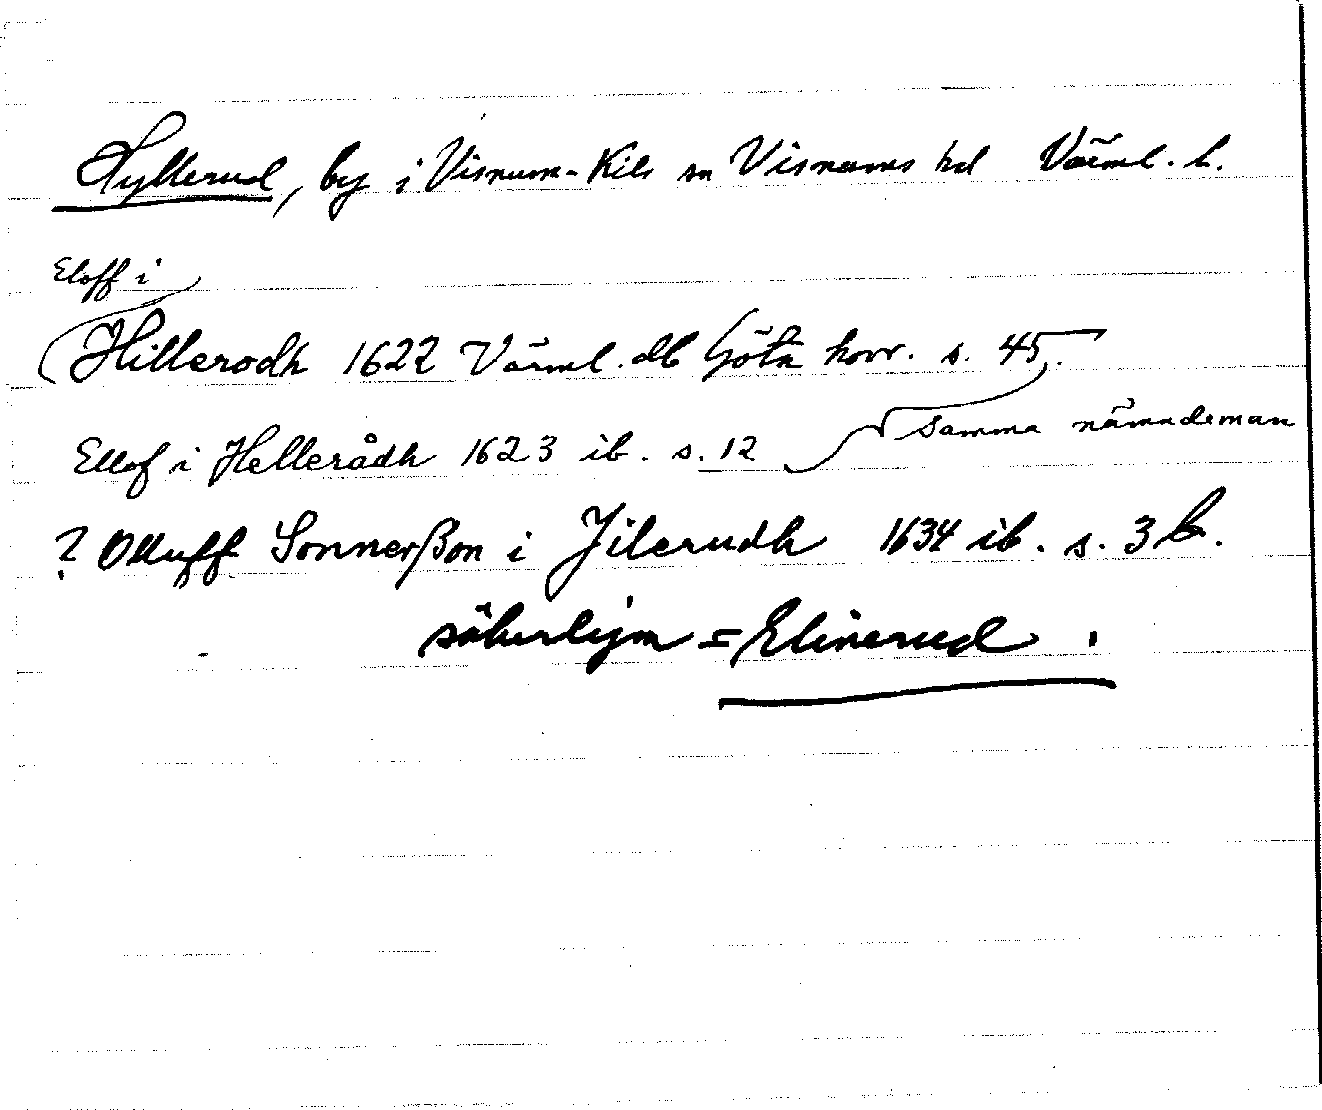 Hyllerud, by i Visnum-Kils sn Visnums hd Värml. l.
Eloff i
Hillerodh 1622 Värml. db Göta hovr. s. 45.
Ellof i Hellerådh 1623 ib. s. 12 samma nämndeman
? Olluff Sonnerßon i Jilerudh 1634 ib. s. 3 b.
säkerligen = Elinerud.